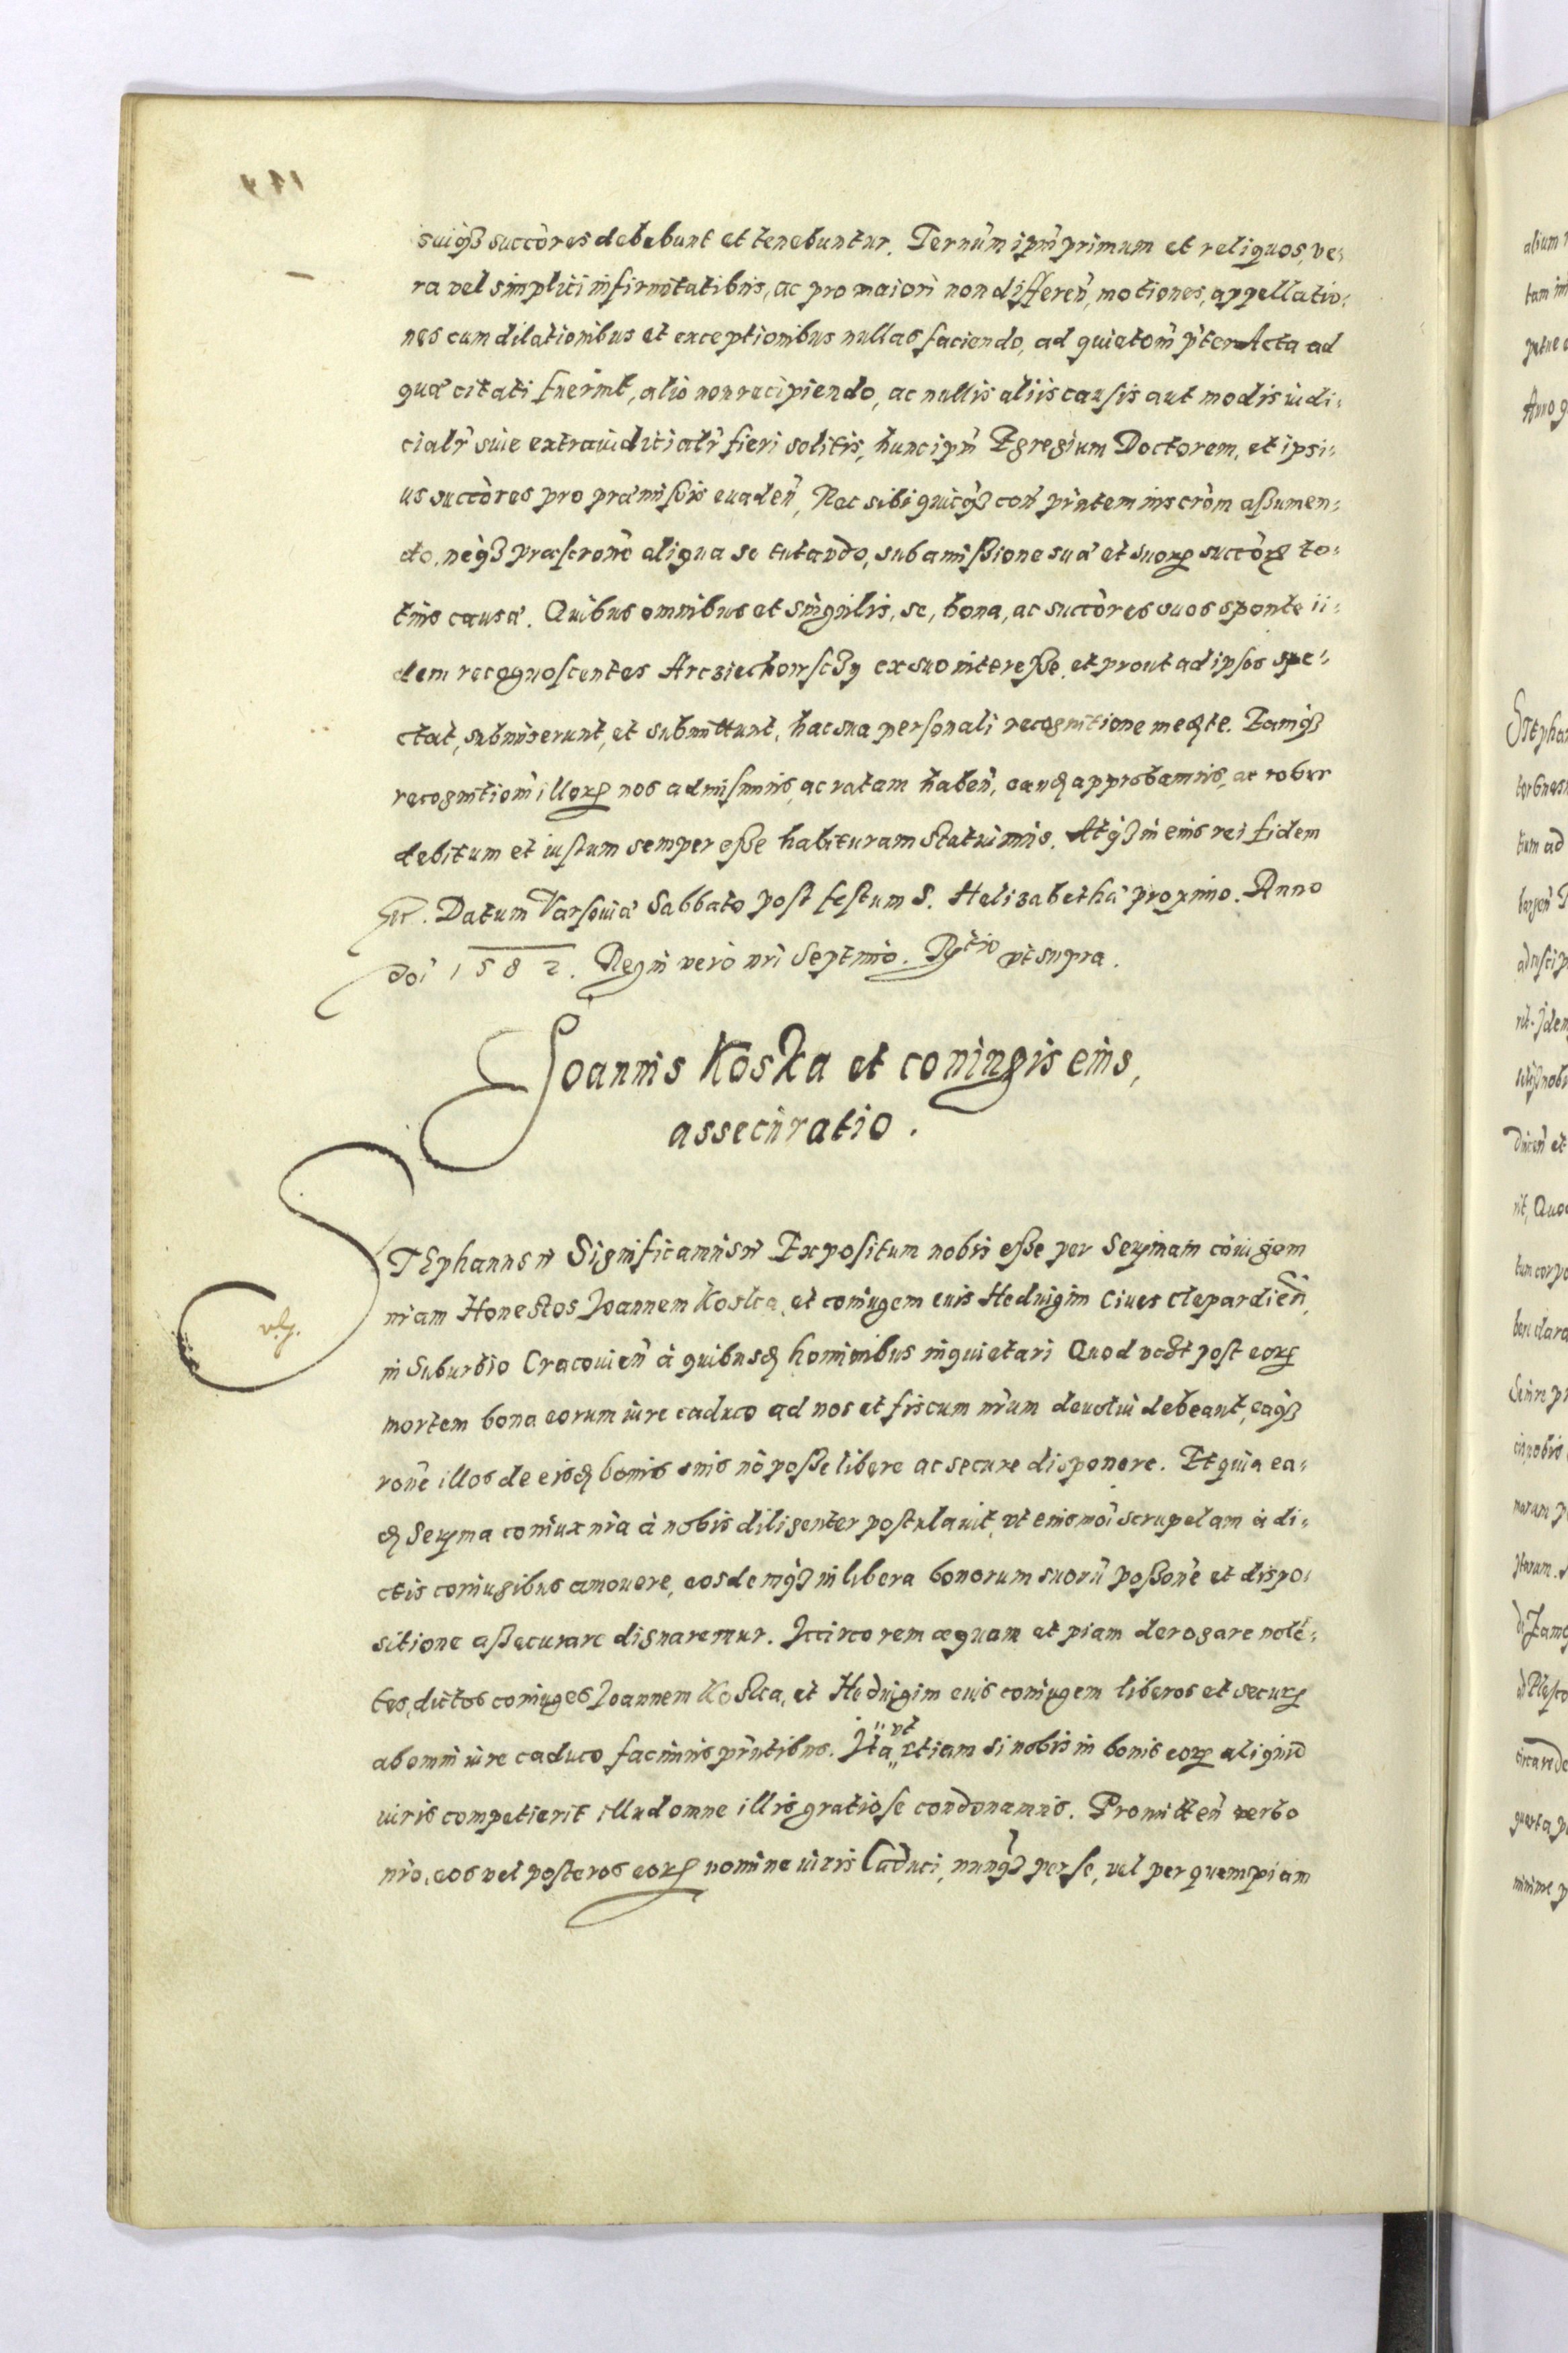 suiq₃ succ̃ores debebunt et tenebuntur. Ternũm ip̃m primum et reliquos, ve:
ra vel simplici infirmitatibus, ac pro maiori non differeñ, motiones, appellatio:
nes cum dilationibus et exceptionibus nullas faciendo, ad quietom̃ p̃ter Acta ad
quæ citati fuerint, alio non recipiendo, ac nullis aliis causis aut modis iudi:
cialr̃ siue extraiudicialr̃ fieri solitis, hunc ip̃m Egregium Doctorem, et ipsi:
us succ̃ores pro præmissis euadeñ, Nec sibi quicq₃ coñ p̃ntem inscr̃om assumen:
do, neq₃ præscr̃one aliqua se tutando, sub amissione suæ et suorꝝ succ̃orꝝ to:
tius causæ. Quibus omnibus et singulis, se, bona, ac succ̃ores suos sponte ii:
dem recognoscentes Arcziechowsczy ex suo interesse, et prout ad ipsos spe:
ctat, submiserunt, et submittunt, hac sua personali recognitione med̃te. Eamq₃
recognitiom̃ illorꝝ nos admisimus, ac ratam habeñ, eand approbamus, ac robur
debitum et iustum semper esse habituram statuimus. Atq₃ in eius rei fidem
etc. Datum Varsouiæ Sabbato post festum S. Helizabethæ proximo. Anno
Doi 1582. Regni vero nr̃i Septimo. Rtio vt supra.
Joannis Koska et coniugis eius,
assecuratio.
STEphanus etc̃ Significamus etc̃ Expositum nobis esse per Sermam coniugem
nr̃am Honestos Joannem Koska, et coniugem euis Heduigim Ciues Clepardieñ,
in suburbio Cracouieñ à quibusd hominibus inquietari Quod vidt post eorꝝ
mortem bona eorum iure caduco ad nos et fiscum nr̃um deuolui debeant, eaq₃
rõne illos de eisd bonis suis nõ posse libere ac secure disponere. Et quia ea:
d Serma coniux nr̃a à nobis diligenter postulauit, vt eiusmõi scrupulam à di:
ctis coniugibus amouere, eosdemq₃ in libera bonorum suorũ possõne et dispo:
sitione assecurare dignaremur. Iccirco rem æquam et piam derogare nolẽ:
tes, dictos coniuges Joannem Koska, et Heduigim euis coniugem liberos et securꝝ
ab omni iure caduco facimus p̃ntibus. Ita vt etiam si nobis in bonis eorꝝ aliquid
iuris competierit illud omne illis gratiose condonamus. Promitteñ verbo
nr̃o, eos vel posteros eorꝝ nomine iuris Caduci, nunq₃ per se, vel per quempiam